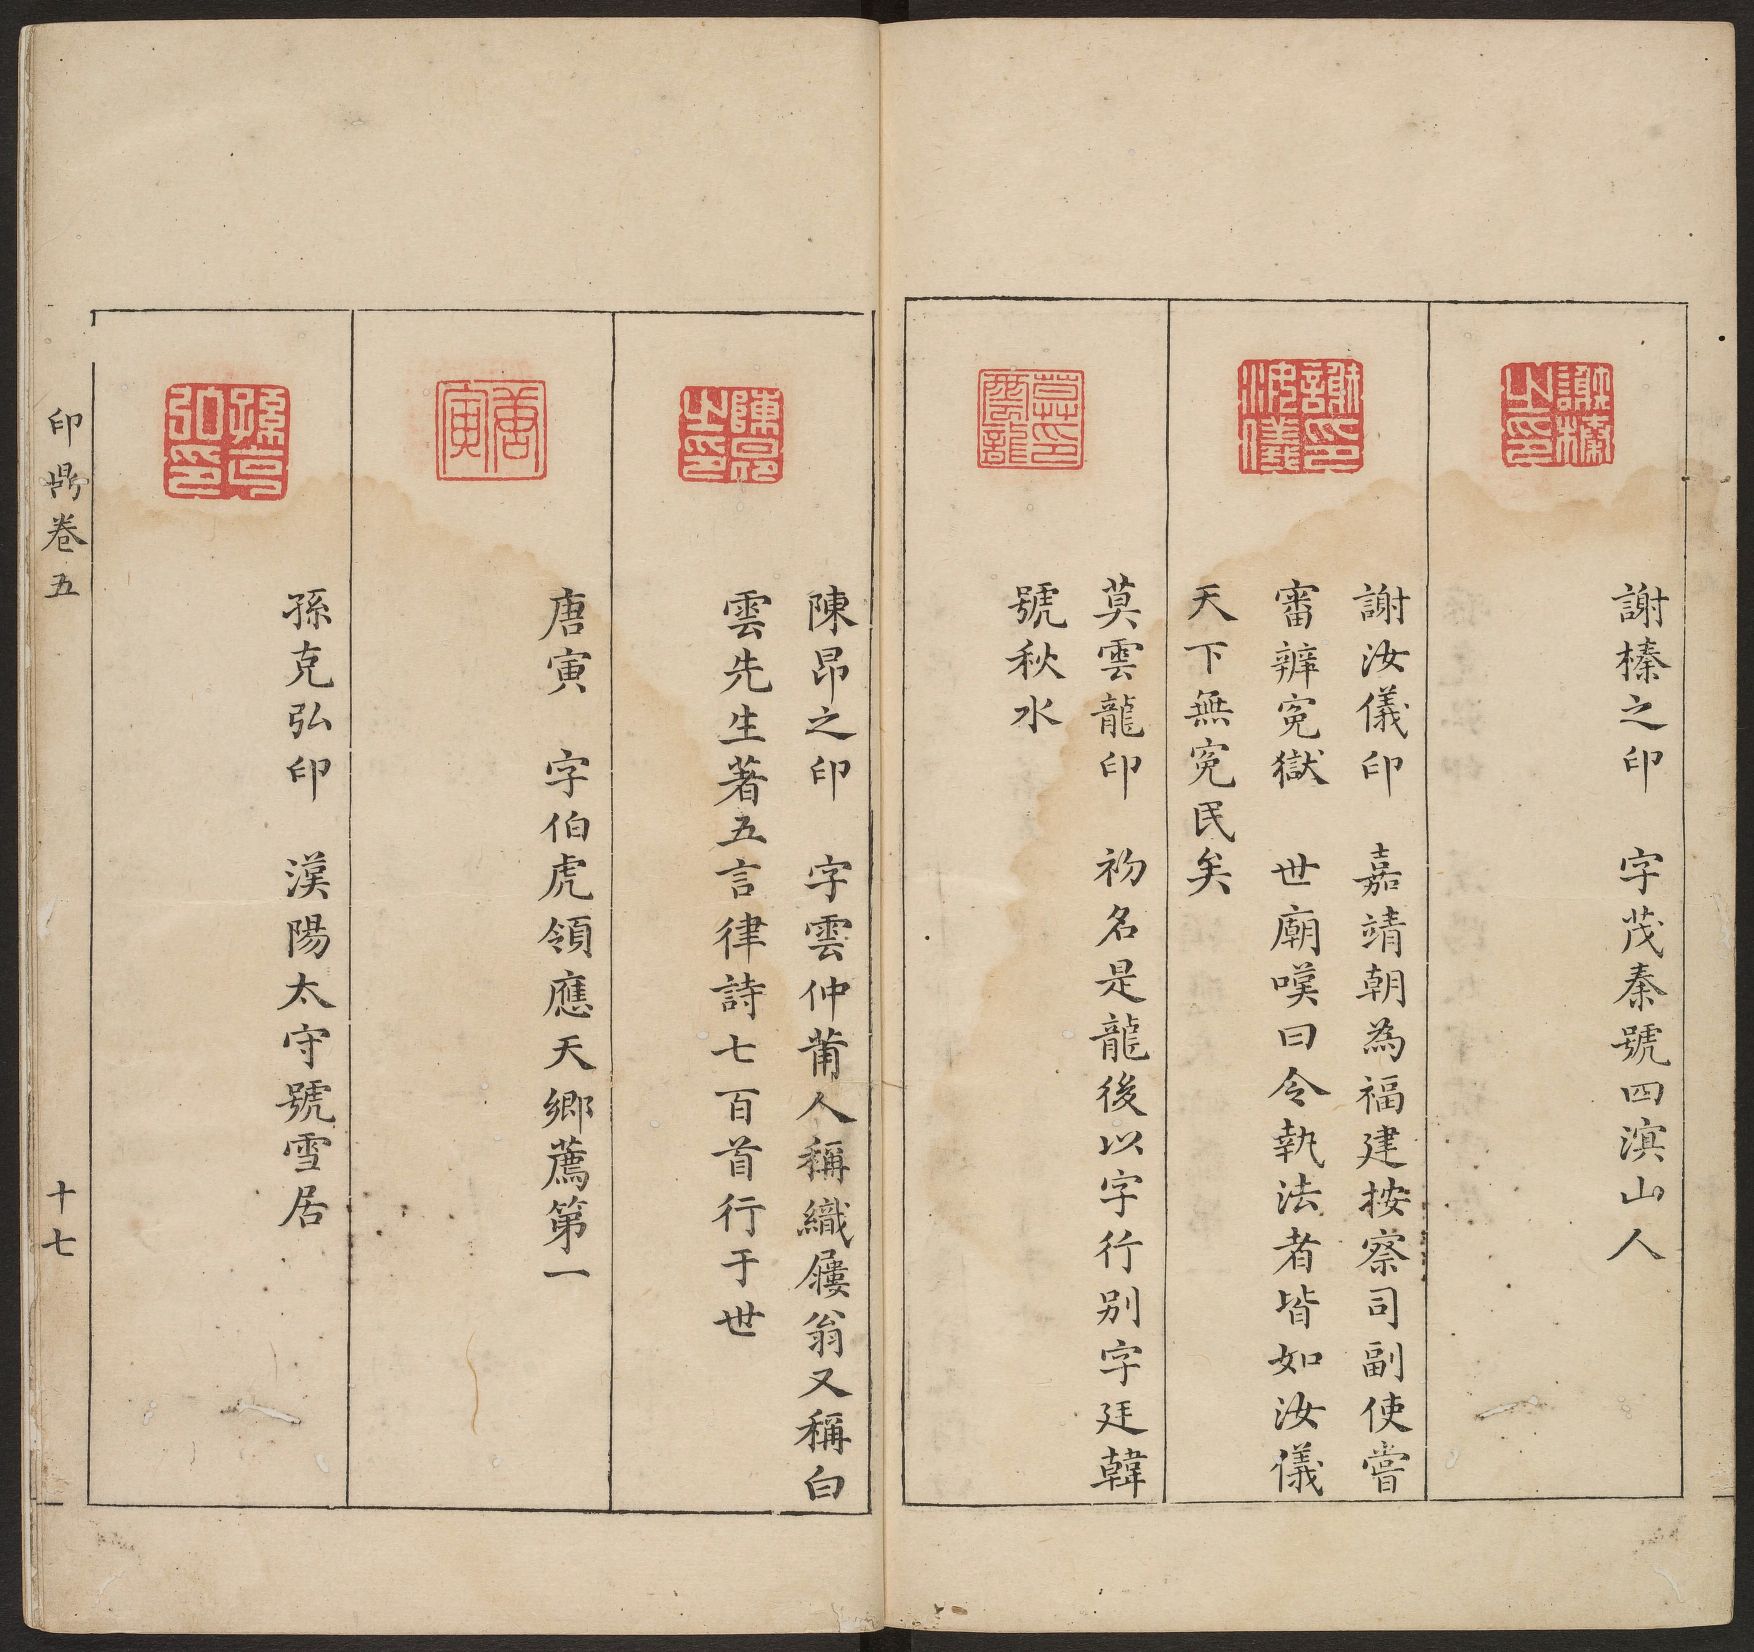 謝榛之印
謝榛之印　字茂秦號四溟山人
謝汝儀印
謝汝儀印　嘉靖朝為福建按察司副使嘗
審辨冤獄　世廟嘆曰令執法者皆如汝儀
天下無冤民矣
莫雲龍印
莫雲龍印　初名是龍後以字行别字廷韓
號秋水
陳昂之印
陳昂之印　字雲仲莆人稱織屨翁又稱白
雲先生著五言律詩七百首行于世
唐寅
唐寅　字伯虎領應天鄉薦第一
孫克弘印
孫克弘印　漢陽太守號雪居
印鼎卷五
十七